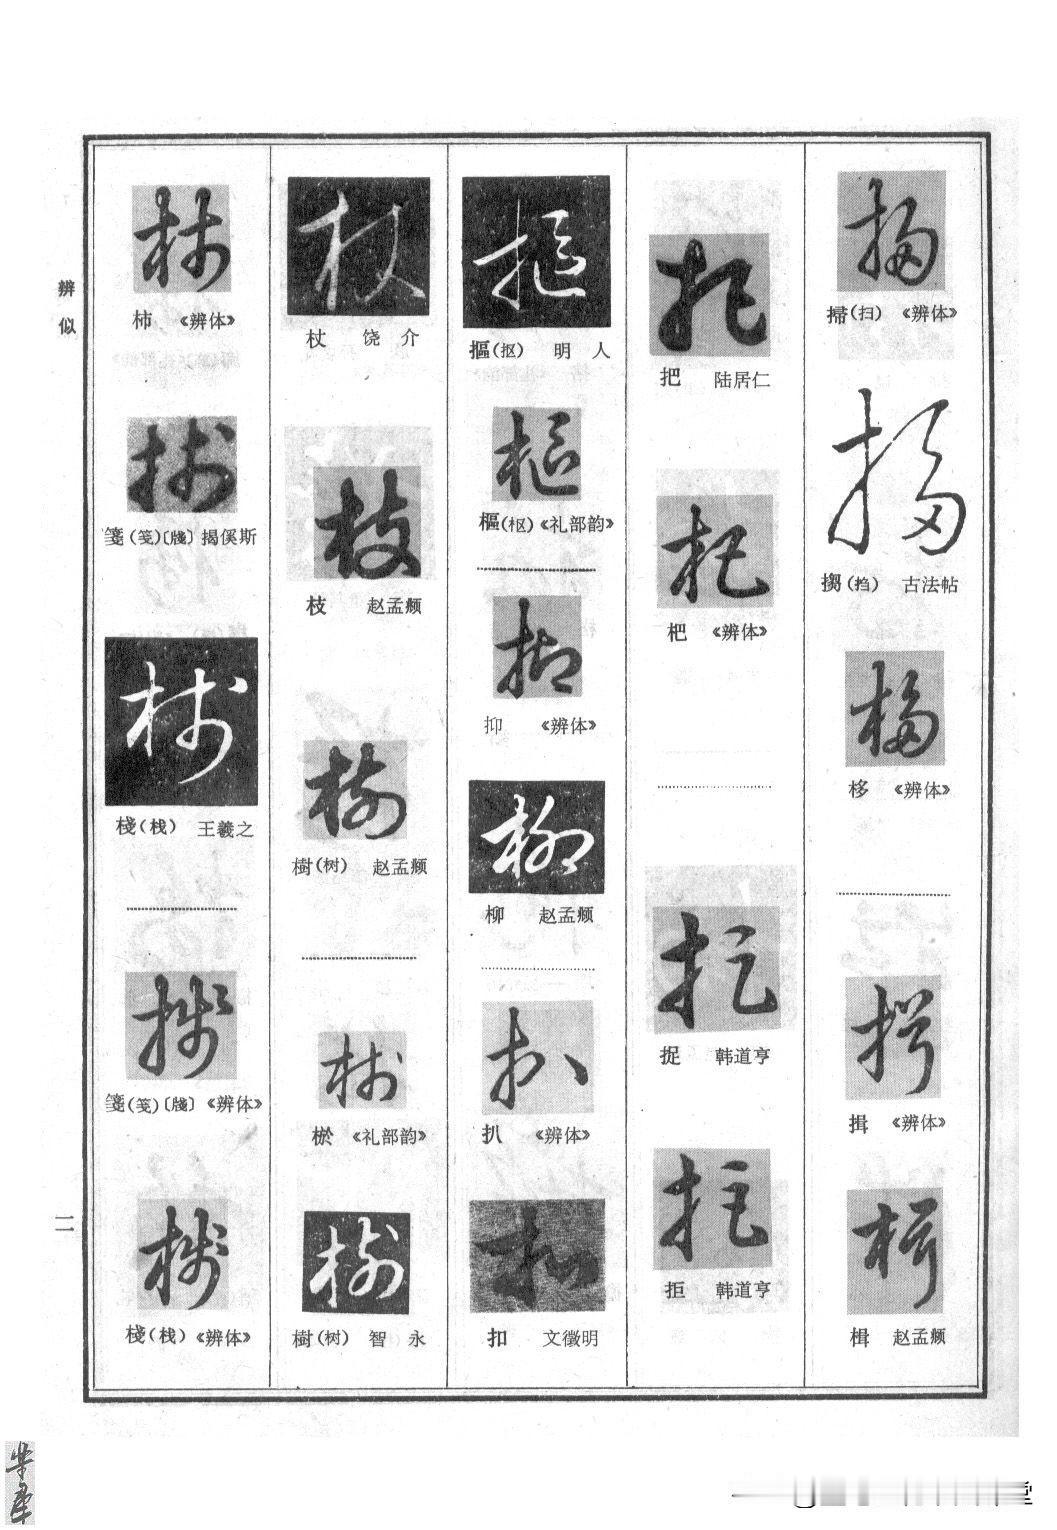 掃(扫) 《辨体》
㨄(挡) 古法帖
栘 《辨体》
揖 《辨体》
楫 赵孟頫
把 陆居仁
杷 《辨体》
捉 韩道亨
拒 韩道亨
摳(抠) 明人
樞(枢) 《礼部韵》
抑 《辨体》
柳 赵孟頫
扒 《辨体》
扣 文徵明
杖 饶介
枝 赵孟頫
樹(树) 赵孟頫
棜 《礼部韵》
樹(树) 智永
柿 《辨体》
箋(笺)〔牋〕 揭傒斯
棧(栈) 王羲之
箋(笺)〔牋〕 《辨体》
棧(栈) 《辨体》
辨似
一一